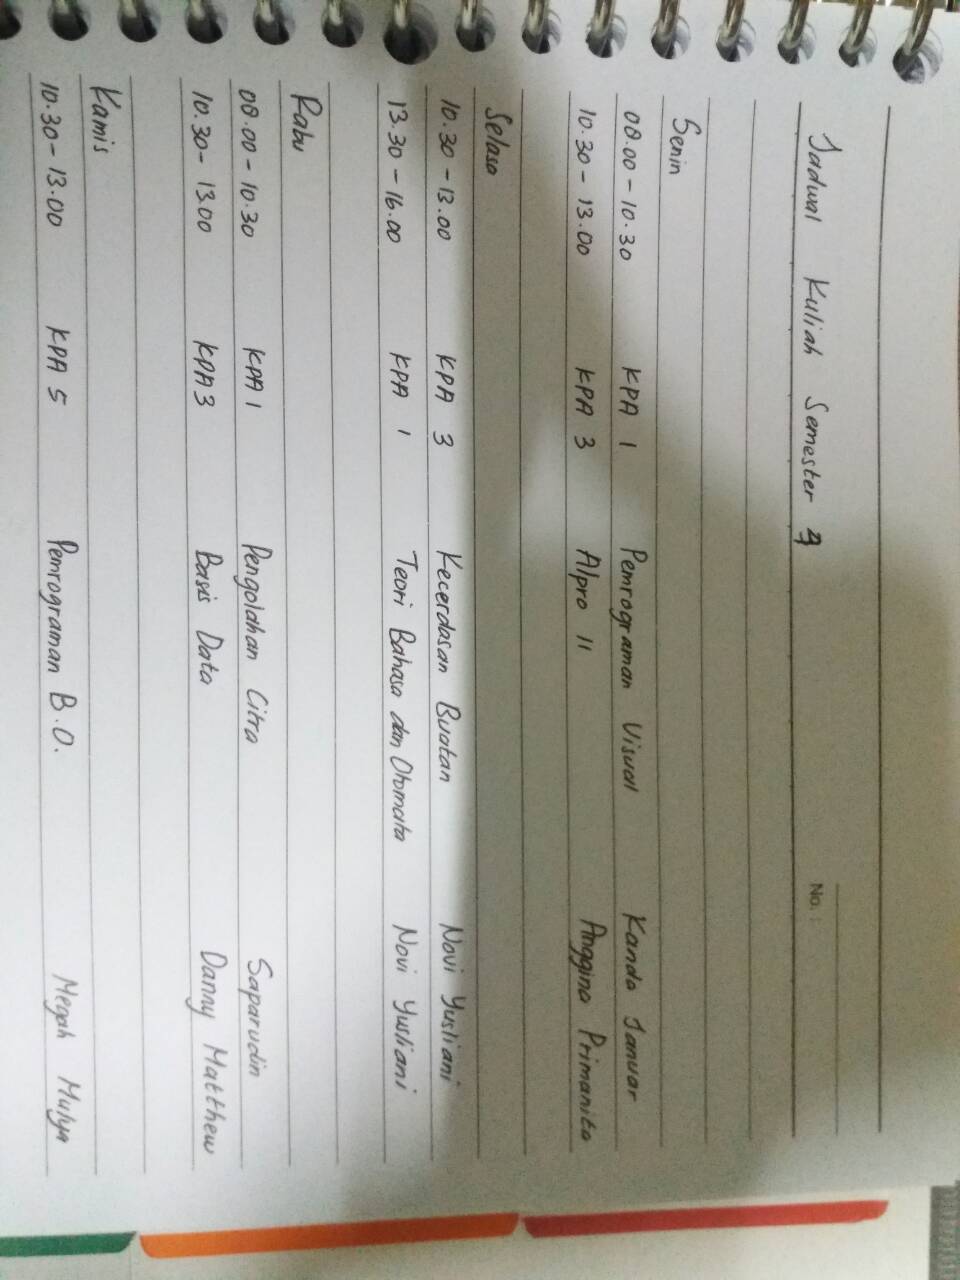 No. :
Jadwal Kuliah Semester 4
Senin
08.00 - 10.30 KPA 1 Pemrograman Visual Kanda Januar
10.30 - 13.00 KPA 3 Alpro II Anggina Primanita
Selasa
10.30 - 13.00 KPA 3 Kecerdasan Buatan Novi Yusliani
13.30 - 16.00 KPA 1 Teori Bahasa dan Otomata Novi Yusliani
Rabu
08.00 - 10.30 KPA 1 Pengolahan Citra Saparudin
10.30 - 13.00 KPA 3 Basis Data Danny Matthew
Kamis
10.30 - 13.00 KPA 5 Pemrograman B.O. Megah Mulya